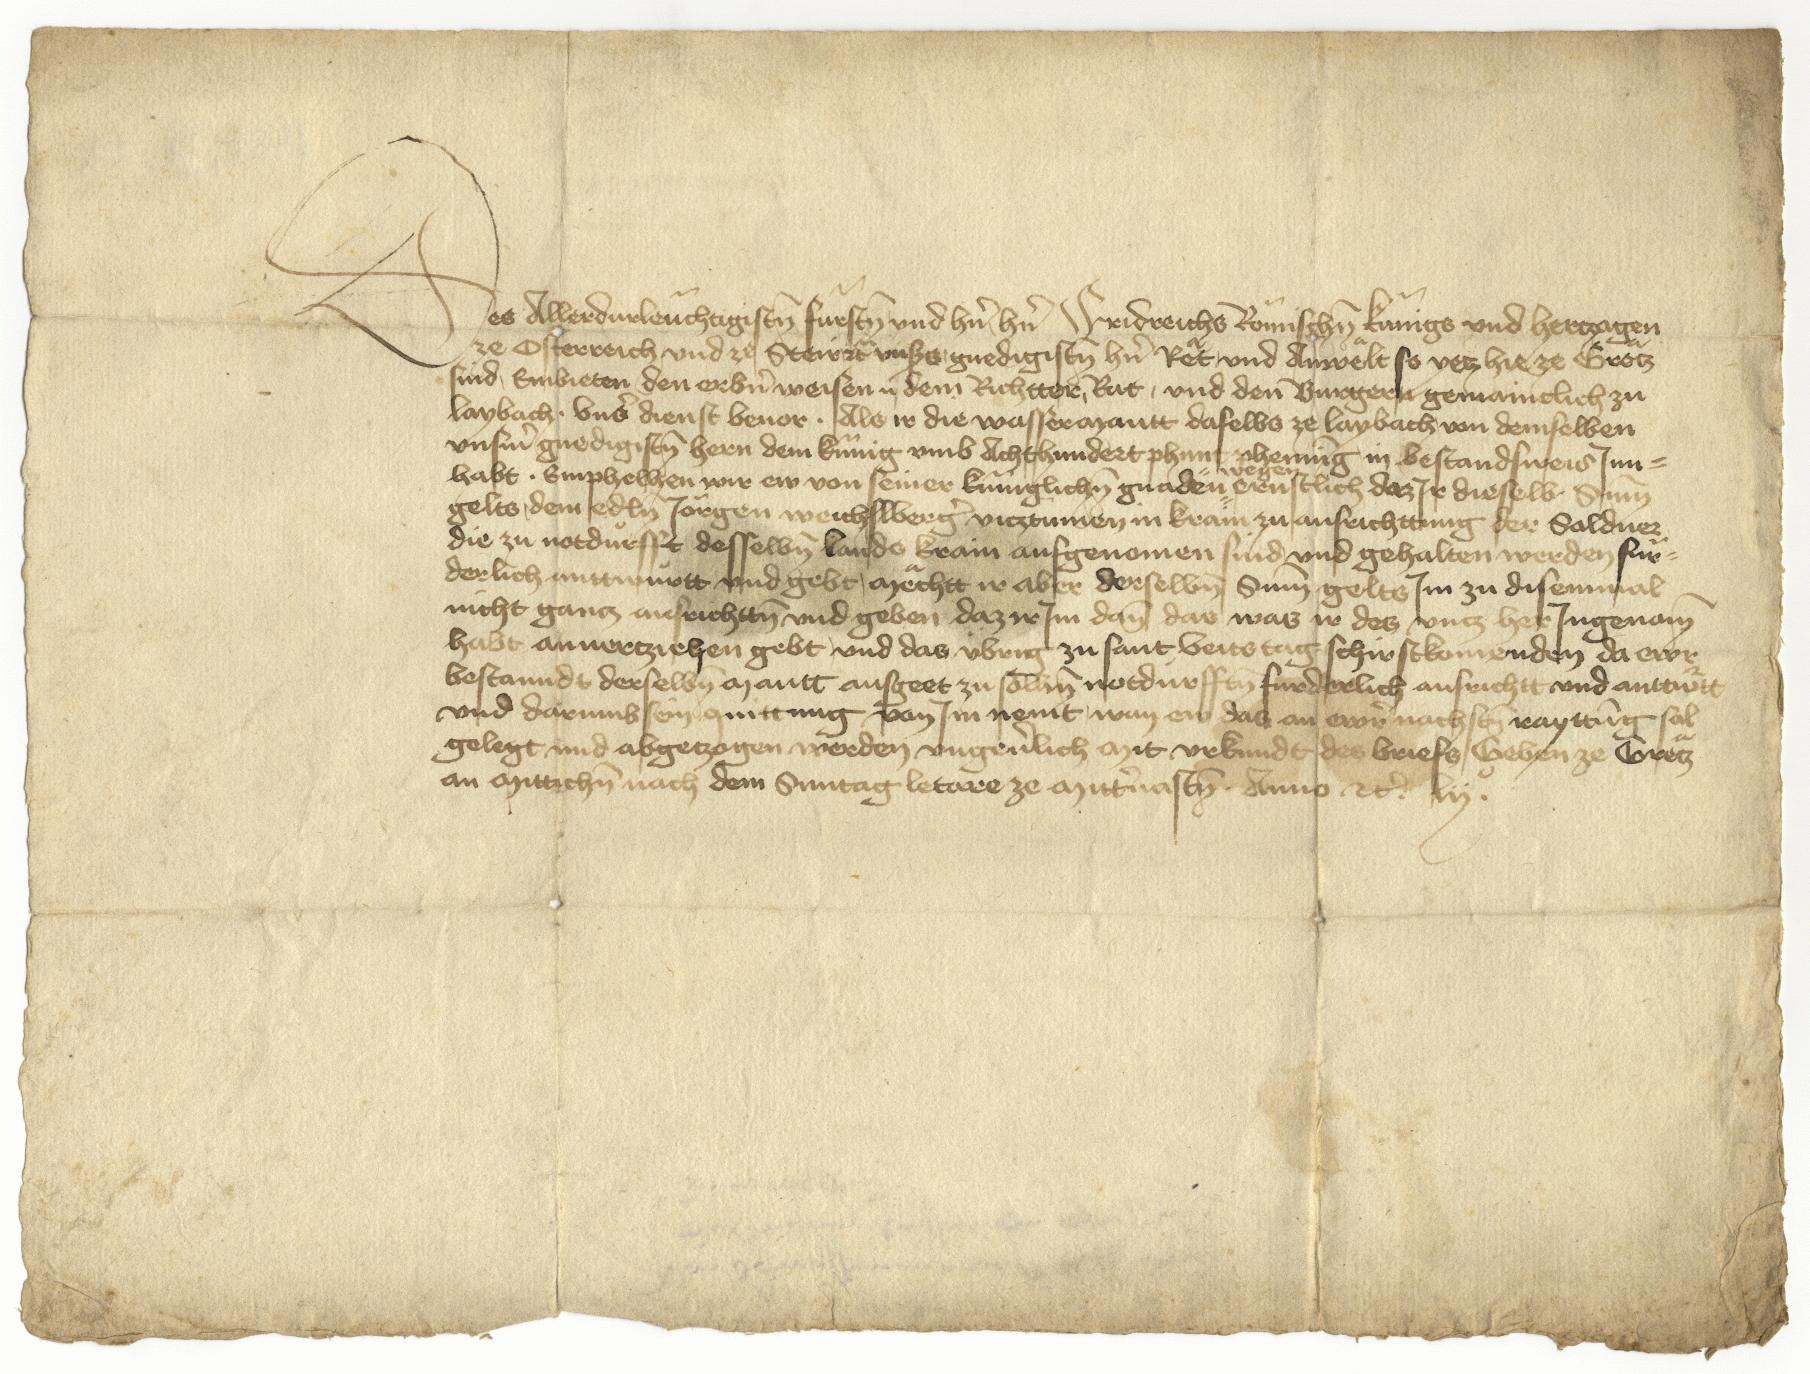 Des Allerdurleuchtigistn̄ fürstn̄ und hn̄ hn̄ Fridreichs Römischn̄ künigs und hertzogen
ze Osterreich und ze Steir ꝛc unsers gnedigistn̄ hn̄ Rët und Anwëlt so yetz hie ze Grëtz
sind Embieten den erbn̄ weisen n dem Richtter, Rat, und den Burgern gemainclich zu
laybach. Unser dienst beuor. Als ir die wassermautt daselbs ze laybach von demselben
unserm gnedigistn̄ hern dem künig umb Achthundert phunt phenning in bestandsweis Inn=
habt. Emphelhen wir ew von seiner küniglichn̄ gnaden wegen ernstlich daz Ir dieselb Sum̄
gelts dem edln̄ Jörgen weichslberger̄ vicztumen in krain zu ausrichttung der Soldner
die zu notdurfft desselbn̄ lands krain aufgenomen sind und gehalten werden für=
derlich anttwurtt und gebt, mëchtt ir aber derselbn̄ Sum̄ gelts Im zu disemmal
nicht gancz ausrichttn̄ und geben daz ir Im dan̄ das was ir des uncz her Ingenom̄
habt anuertziehen gebt und das ubrig zu sant Veits tag schirstkomenden da ewr
bestanndt derselbn̄ mautt ausgeet zu solhn̄ notdürfftn̄ fürderlich ausrichtt und anttwrtt
und darumb sein quittung von Im nemt wan ew das an ewrr̄ nachstn̄ rayttūg sol
gelegt und abgetzogen werden ungeuerlich Mit urkundt des briefs Geben ze Grëtz
an Mittichn̄ nach dem Sunntag letare ze Mitteruastn̄. Anno ꝛc. lij.